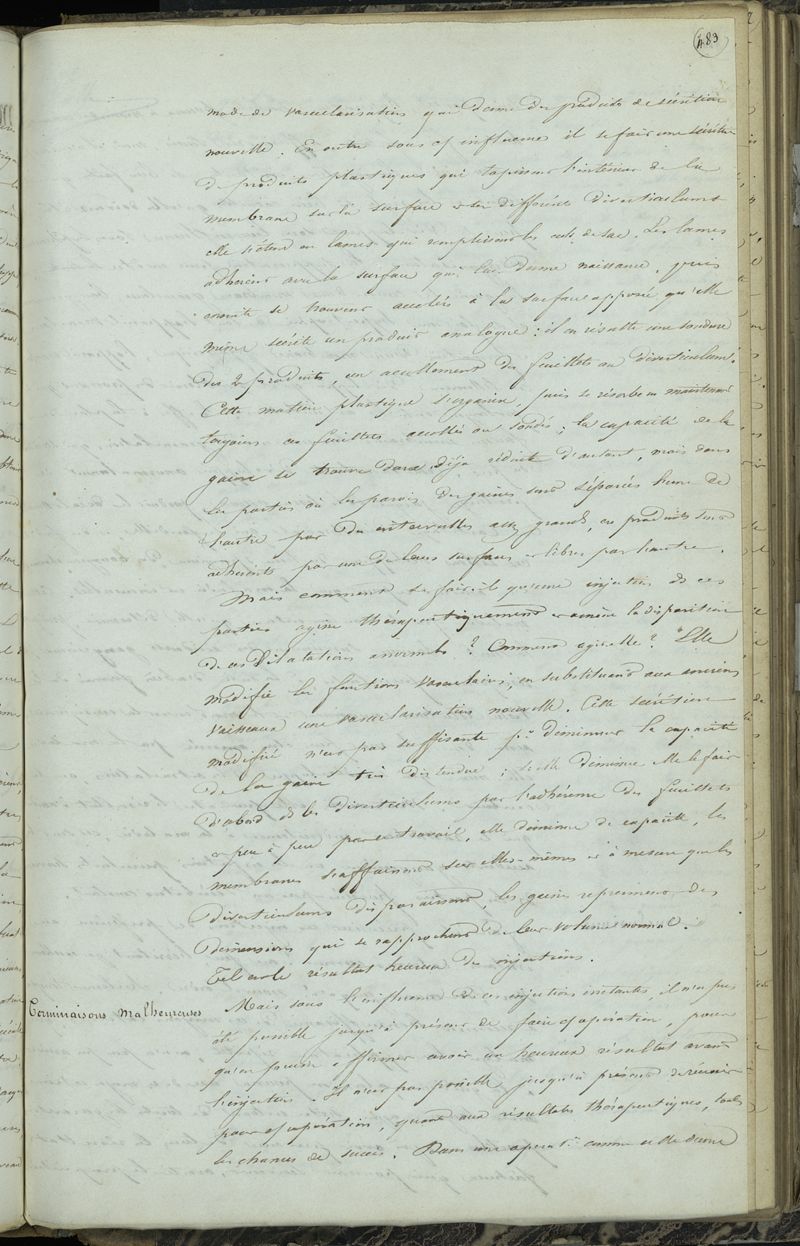 483
mode de vascularisation qui donne des produits de sécrétion
nouvelle. En outre sous cf influence il se fait une sécrétion
de produits plastiques qui tapissent l'intérieur de la
membrane sur la surface et les différents diverticulums
elle s'étend en lames qui remplissent les culs de sac. Les lames
adhèrent avec la surface qui leur donne naissance, puis
ensuite se trouvent accolées à la surface opposée qui elle
même sécrète un produit analogue : il en résulte une soudure
des 2 produits, un accollement des feuillets au diverticulum.
Cette matière plastique s'organise, puis se résorbe en maintenant
toujours ces feuillets accollés ou soudés ; la capacité de la
gaine se trouve donc déjà réduite d'autant, mais dans
les parties où les parois des gaines sont séparées l'une de
l'autre par des intervalles assez grands, ces produits sont
adhérents par une de leurs surfaces et libres par l'autre.
Mais comment se fait-il qu'une injection de ces
parties agisse thérapeutiquement et amène la disparition
de ces dilatations anormales ? Comment agit-elle ? Elle
modifie les fonctions vasculaires, en substituant aux anciens
vaisseaux une vascularisation nouvelle. Cette sécrétion
modifiée n'est pas suffisante pr diminuer la capacité
de la gaine très distendue ; si elle diminue elle le fait
d'abord ds les diverticulums par l'adhérence des feuillets
et peu à peu par ce travail, elle diminue de capacité, les
membranes s'affaissent sur elles-mêmes et à mesure que les
diverticulums disparaissent, les gaines reprennent des
dimensions qui se rapprochent de leur volume normal.
Tel est le résultat heureux des injections.
Terminaisons Malheureuses
Mais sous l'influence de ces injections irritantes, il n'a pas
été possible jusqu'à présent de faire cf opération, pour
qu'on puisse affirmer avoir un heureux résultat avant
l'injection. Il n'est pas possible jusqu'à présent de réunir
pour cf opération, quant aux résultats thérapeutiques, toutes
les chances de succès. Dans une opérat. comme celle